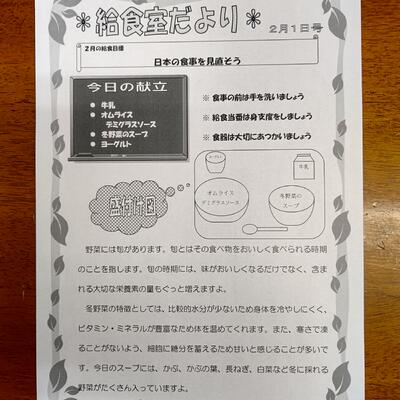 ＊給食室だより＊
2月1日号
2月の給食目標
日本の食事を見直そう
今日の献立
● 牛乳
● オムライス
デミグラスソース
● 冬野菜のスープ
● ヨーグルト
※ 食事の前は手を洗いましょう
※ 給食当番は身支度をしましょう
※ 食器は大切にあつかいましょう
盛付け図
ヨーグルト
牛乳
オムライス
デミグラスソース
冬野菜の
スープ
野菜には旬があります。旬とはその食べ物をおいしく食べられる時期
のことを指します。旬の時期には、味がおいしくなるだけでなく、含ま
れる大切な栄養素の量もぐっと増えます。
冬野菜の特徴としては、比較的水分が少ないため身体を冷やしにくく、
ビタミン・ミネラルが豊富なため体を温めてくれます。また、寒さで凍
ることがないよう、細胞に糖分を蓄えるため甘いと感じることが多いで
す。今日のスープには、かぶ、かぶの葉、長ねぎ、白菜など冬に採れる
野菜がたくさん入っていますよ。